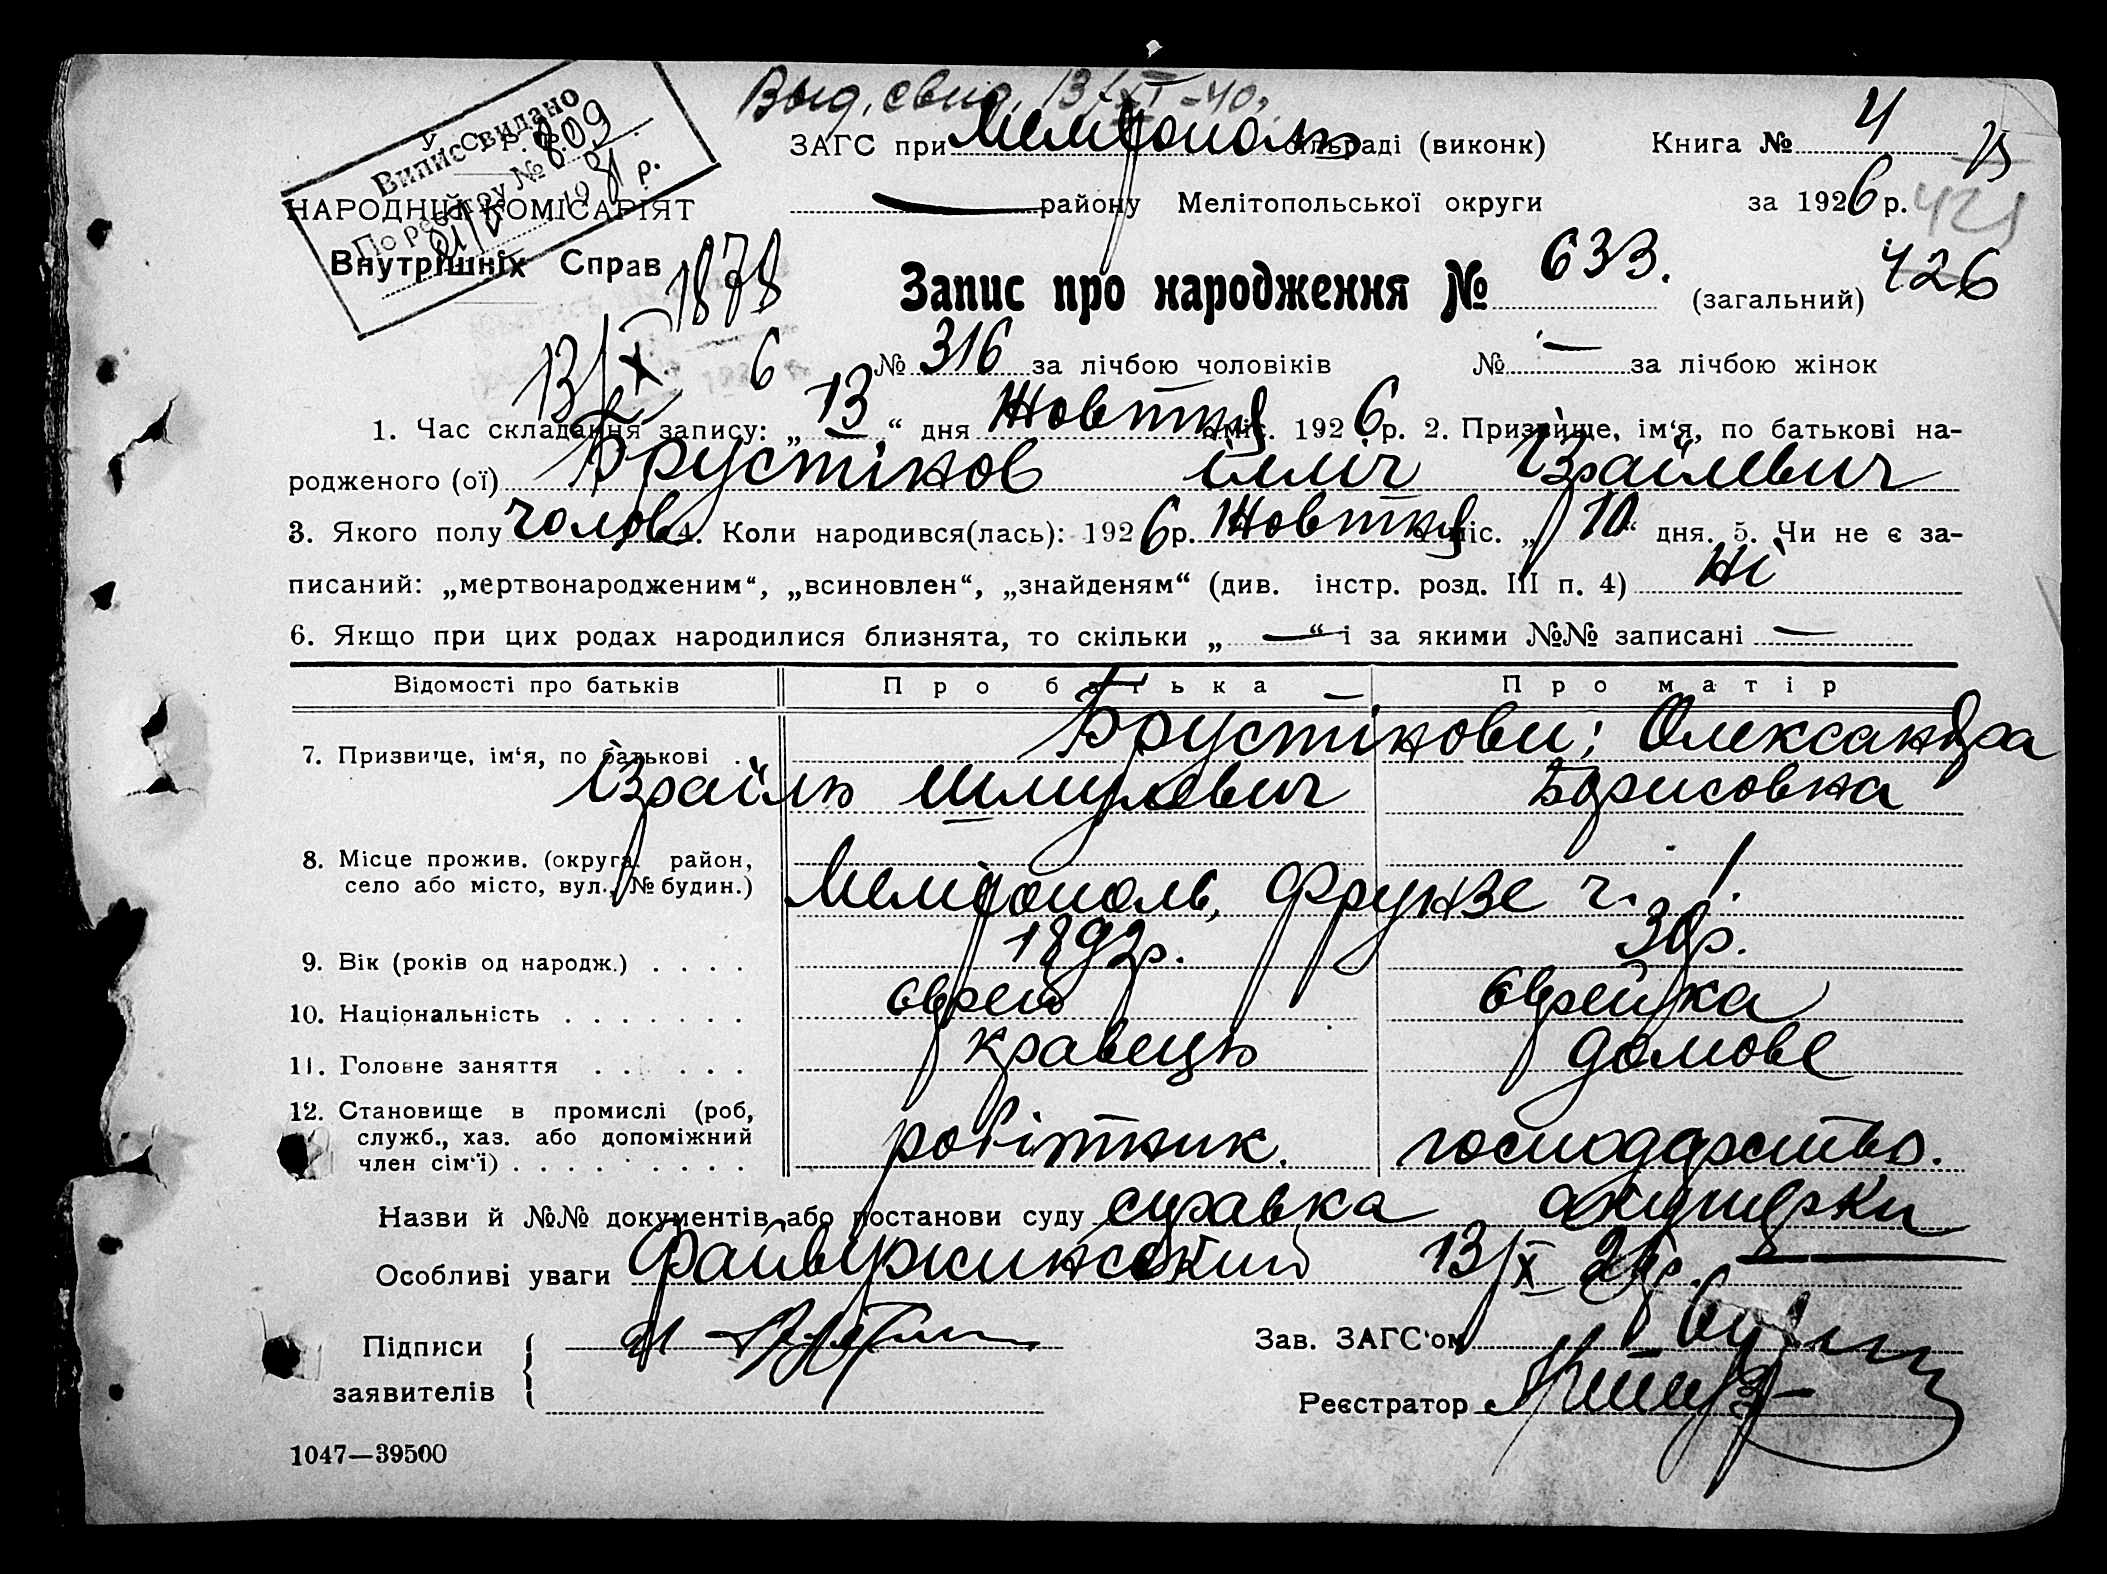 Выд. свид. 13/XI-40г.
У. С. Р. Р.
Випис Свидано
По реєстру № 809
21/V 1931 р.
ЗАГС при Мелітополь сільраді (виконк) Книга № 4
НАРОДНИЙ КОМІСАРІЯТ
району Мелітопольської округи за 1926 р. 421
Внутрішніх Справ 1878
Запис про народження № 633. (загальний) 426
13/X 6 № 316 за лічбою чоловіків № — за лічбою жінок
1. Час складання запису: „13“ дня Жовтня міс. 1926 р. 2. Призвище, ім‘я, по батькові на-
родженого (ої) Брустінов Ілліч Ізраїлевич
3. Якого полу чолов 4. Коли народився(лась): 1926 р. Жовтня міс. „10“ дня. 5. Чи не є за-
писаний: „мертвонародженим“, „всиновлен“, „знайденям“ (див. інстр. розд. III п. 4) Ні
6. Якщо при цих родах народилися близнята, то скільки „—“ і за якими №№ записані —
Відомості про батьків Про батька Про матір
7. Призвище, ім‘я, по батькові . Брустінови; Олександра
Ізраїль Шмулевич Борисовна
8. Місце прожив. (округа, район,
село або місто, вул., № будин.) Мелітополь, Фрунзе ч. 1.
9. Вік (років од народж.) . . . . 1892р. 30р.
10. Національність . . . . . . . єврей єврейка
11. Головне заняття . . . . . . кравець домове
12. Становище в промислі (роб,
служб., хаз. або допоміжний
член сім‘ї) . . . . . . . . . робітник. господарство.
Назви й №№ документів або постанови суду справка акушерки
Особливі уваги Файвержинський 13/X 26р.
Підписи
заявителів
Зав. ЗАГС‘ом
Реєстратор
1047—39500